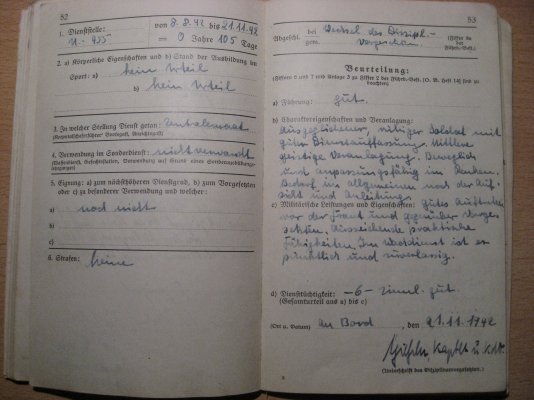 52
1. Dienststelle: von 8.8.42 bis 21.11.42
U-455 = 0 Jahre 105 Tage
2. a) Körperliche Eigenschaften und b) Stand der Ausbildung im
Sport: a) kein Urteil
b) kein Urteil
3. In welcher Stellung Dienst getan:
4. Verwendung im Sonderdienst: nicht verwandt
5. Eignung: a) zum nächsthöheren Dienstgrad, b) zum Vorgesetzten
oder c) zu besonderer Verwendung und welcher:
a) noch nicht
b)
c)
6. Strafen: keine
53
Abgeschl. bei Wechsel des Diszipl.-
gem. Vorgesetzten.
Beurteilung:
a) Führung: gut.
b) Charaktereigenschaften und Veranlagung:
Ausgeglichener, ruhiger Soldat mit
guter Dienstauffassung. Mittlere
geistige Veranlagung. Beweglich
und anpassungsfähig im Denken.
Bedarf im allgemeinen noch der Auf-
sicht und Anleitung.
c) Militärische Leistungen und Eigenschaften: gutes Auftreten
vor der Front und gegenüber Vorge-
setzten. Ausreichende praktische
Fähigkeiten. Im Wachdienst ist er
pünktlich und zuverlässig.
d) Diensttüchtigkeit: -6- zieml. gut.
(Gesamturteil aus a) bis c)
(Ort u. Datum) An Bord, den 21.11.1942
Kaptlt u. Kdt.
(Unterschrift des Disziplinarvorgesetzten.)